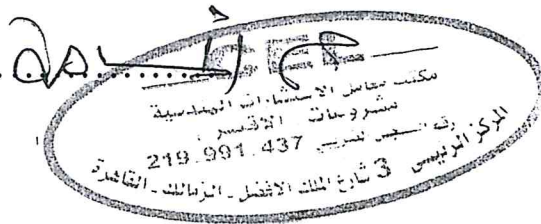 مكتب معامل الاستشارات الهندسية
مشروعات الاقصر
رقم التسجيل الضريبي 219.991.437
المركز الرئيسى 3 شارع الملك الافضل - الزمالك - القاهرة